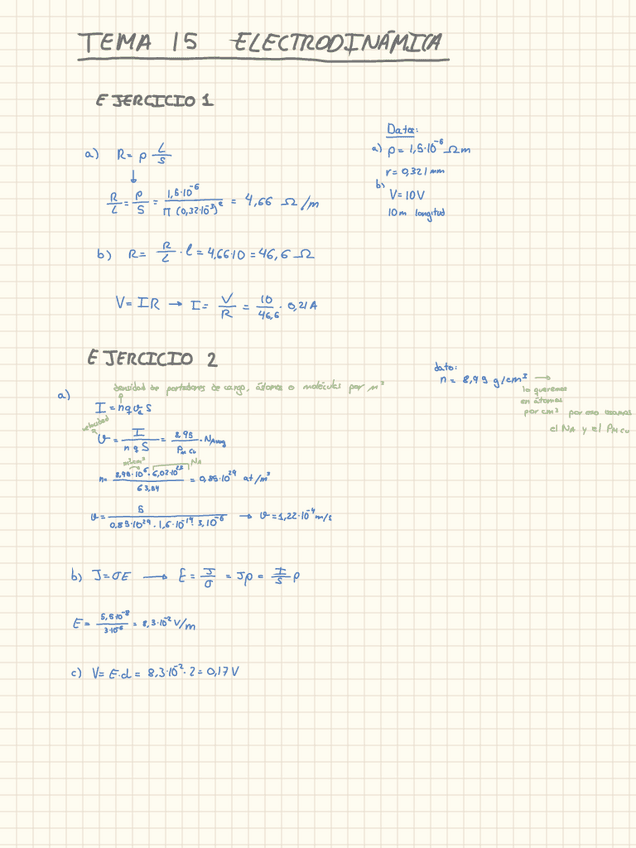 TEMA 15 ELECTRODINÁMICA
EJERCICIO 1
Datos:
a) ρ = 1,5·10⁻⁶ Ωm
r = 0,321 mm
b) V = 10V
10m longitud
a) R = ρ L/S
↓
R/L = ρ/S = 1,5·10⁻⁶ / Π (0,32·10⁻³)² = 4,66 Ω/m
b) R = R/L · l = 4,66·10 = 46,6 Ω
V = IR → I = V/R = 10/46,6 · 0,21A
EJERCICIO 2
dato:
n = 8,93 g/cm³ →
lo queremos
en átomos
por cm³ por eso usamos
el NA y el PM Cu
densidad de portadores de carga, átomos o moléculas por m³
a) I = nqvS
velocidad
v = I / n q S = 8,93 / PM Cu · NAvog
m³ cm³ NA
n = 8,93·10⁶ · 6,02·10²³ / 63,54 = 0,85·10²⁹ at/m³
v = 5 / 0,85·10²⁹ · 1,6·10⁻¹⁹ 3·10⁻⁶ → v = 1,22·10⁻⁴ m/s
b) J = σE → E = J/σ = Jρ = I/S ρ
E = 5,5·10⁻⁸ / 3·10⁻⁶ = 8,3·10⁻² V/m
c) V = E·d = 8,3·10⁻² · 2 = 0,17V